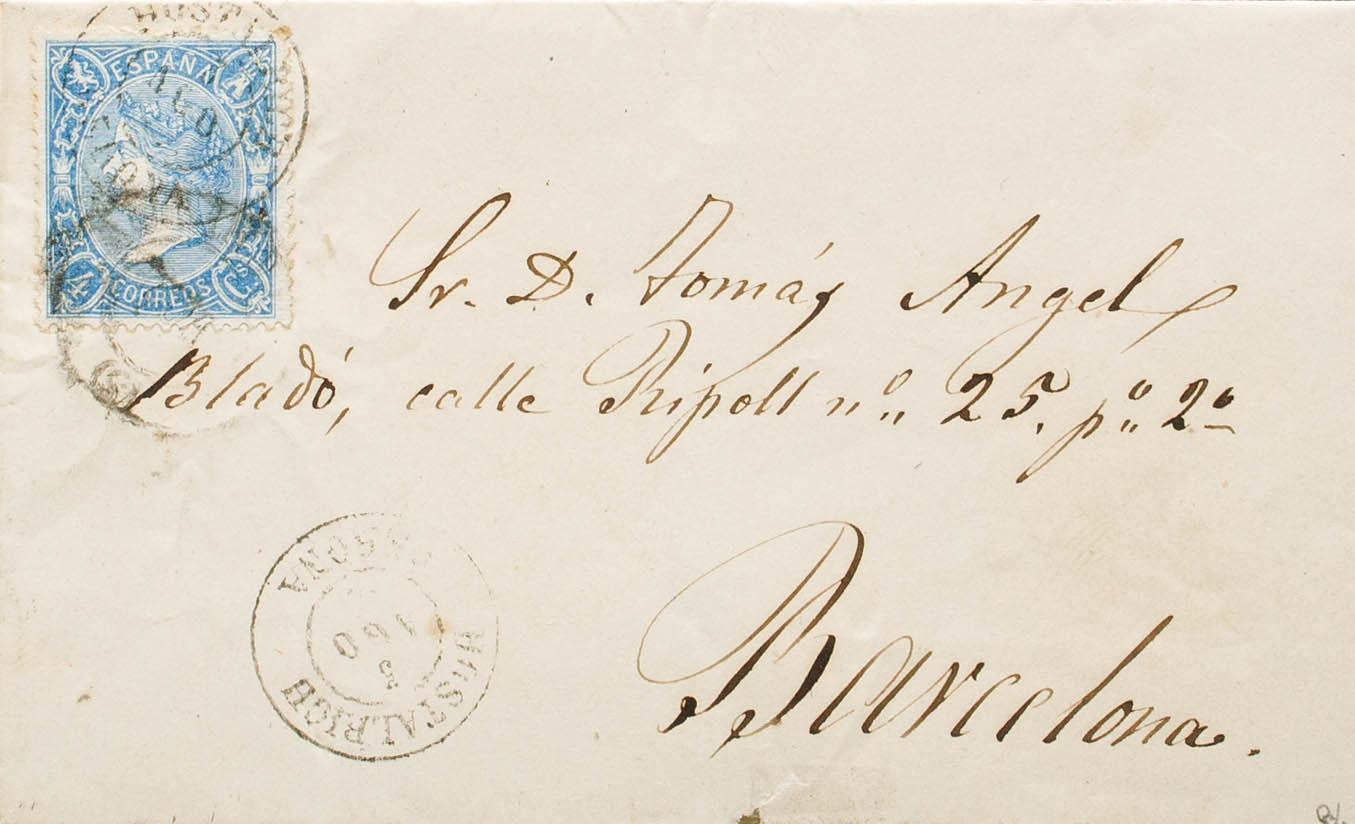 ESPAÑA
4
CORREOS
4 Cs
Sr. D. Tomás Angel
Bladó, calle Ripoll nº 25. pº 2º
Barcelona.
HOSTALRICH